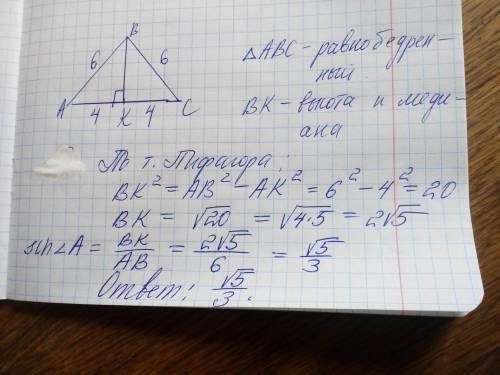 B
6 6
A 4 K 4 C
△ABC - равнобедрен-
ный
BK - высота и меди-
ана
По т. Пифагора:
BK² = AB² - AK² = 6² - 4² = 20
BK = √20 = √4·5 = 2√5
sin∠A = BK/AB = 2√5/6 = √5/3
Ответ: √5/3.